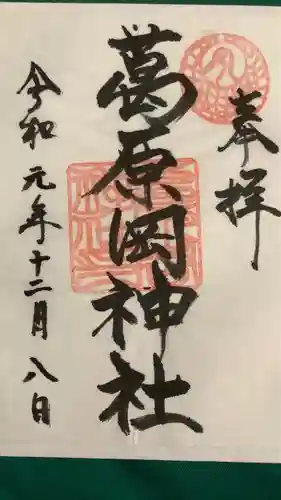 奉拝
葛原岡神社
令和元年十二月八日